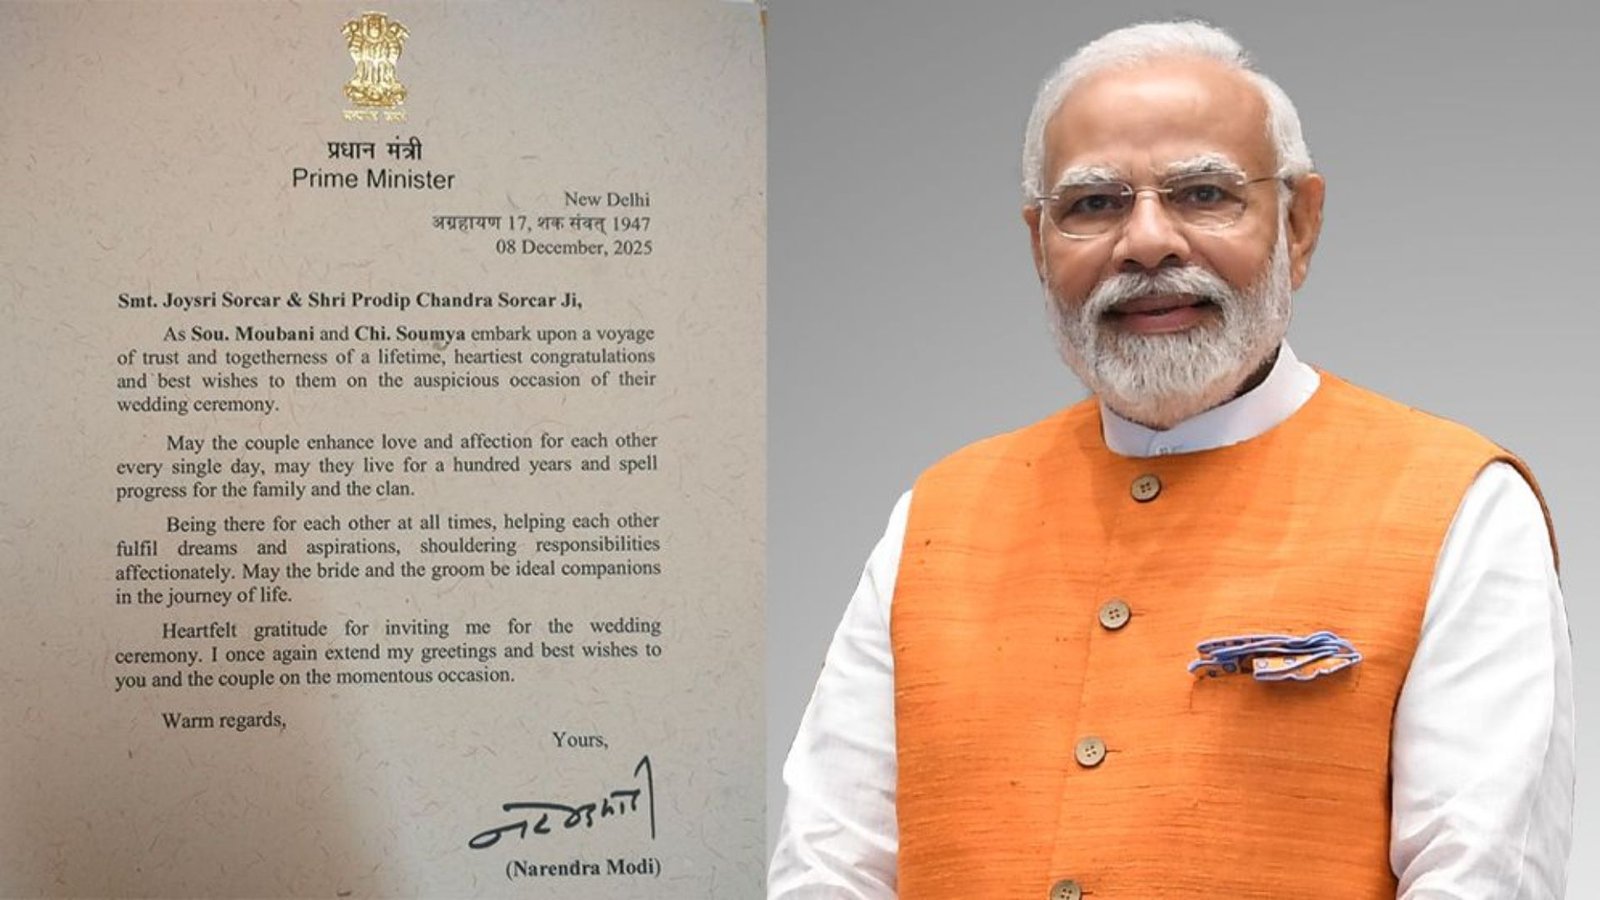 प्रधान मंत्री
Prime Minister
New Delhi
अग्रहायण 17, शक संवत् 1947
08 December, 2025
Smt. Joysri Sorcar & Shri Prodip Chandra Sorcar Ji,
As Sou. Moubani and Chi. Soumya embark upon a voyage
of trust and togetherness of a lifetime, heartiest congratulations
and best wishes to them on the auspicious occasion of their
wedding ceremony.
May the couple enhance love and affection for each other
every single day, may they live for a hundred years and spell
progress for the family and the clan.
Being there for each other at all times, helping each other
fulfil dreams and aspirations, shouldering responsibilities
affectionately. May the bride and the groom be ideal companions
in the journey of life.
Heartfelt gratitude for inviting me for the wedding
ceremony. I once again extend my greetings and best wishes to
you and the couple on the momentous occasion.
Warm regards,
Yours,
(Narendra Modi)